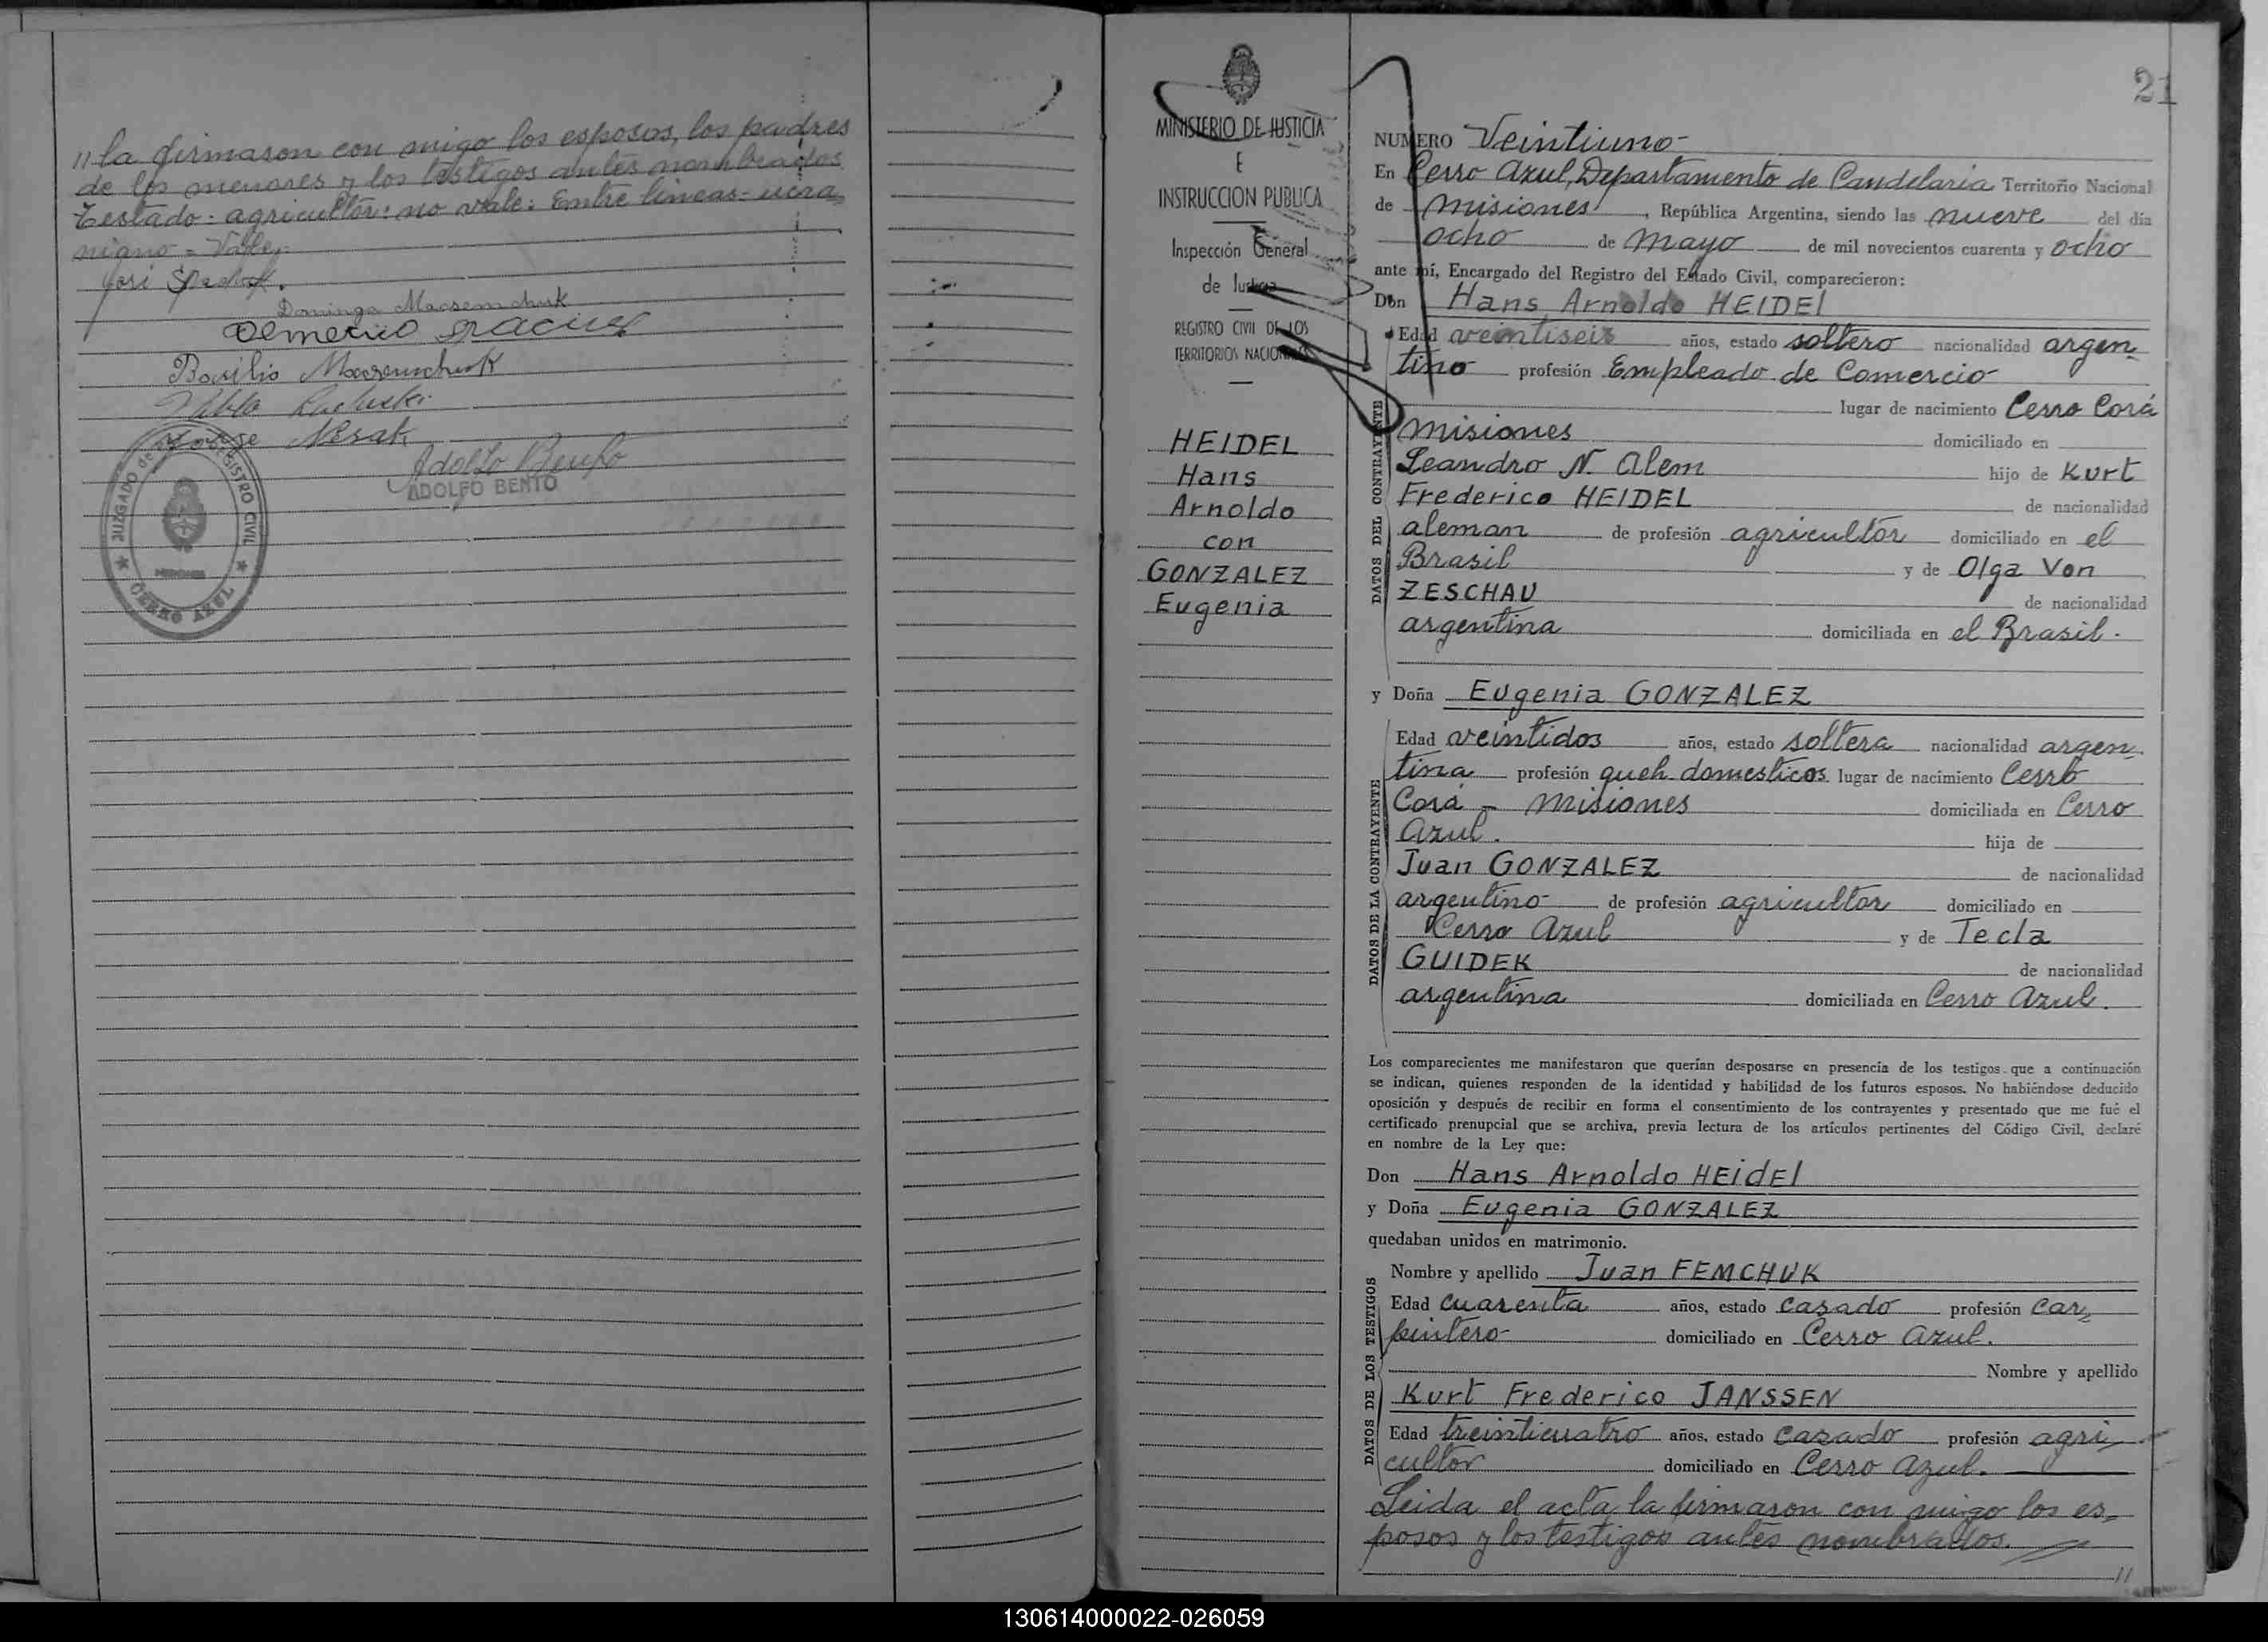 // la firmaron con migo los esposos, los padres
de los menores y los testigos antes nombrados
Testado: agricultor: no vale: Entre lineas-ucra
niano = Vale;
Dominga
Basilio
Pablo
Jorge
Adolfo Bento
ADOLFO BENTO
JUZGADO de REGISTRO CIVIL
★ CERRO AZUL ★
MISIONES
MINISTERIO DE JUSTICIA
E
INSTRUCCION PUBLICA
Inspección General
de Justicia
REGISTRO CIVIL DE LOS
TERRITORIOS NACIONALES
HEIDEL
Hans
Arnoldo
con
GONZALEZ
Eugenia
21
NUMERO Veintiuno-
En Cerro Azul, Departamento de Candelaria Territorio Nacional
de Misiones, República Argentina, siendo las nueve del día
ocho de Mayo de mil novecientos cuarenta y ocho
ante mí, Encargado del Registro del Estado Civil, comparecieron:
Don Hans Arnoldo HEIDEl
Edad veintiseis años, estado soltero nacionalidad argen-
tino profesión Empleado de Comercio
lugar de nacimiento Cerro Corá
Misiones domiciliado en
Leandro N. Alem hijo de Kurt
Frederico HEIDEL de nacionalidad
aleman de profesión agricultor domiciliado en el
Brasil y de Olga Von
ZESCHAU de nacionalidad
argentina domiciliada en el Brasil.
DATOS DEL CONTRAYENTE
y Doña Eugenia GONZALEZ
Edad veintidos años, estado soltera nacionalidad argen-
tina profesión queh. domesticos lugar de nacimiento Cerro
Corá - Misiones domiciliada en Cerro
Azul. hija de
Juan GONZALEZ de nacionalidad
argentino de profesión agricultor domiciliado en
Cerro Azul y de Tecla
GUIDEK de nacionalidad
argentina domiciliada en Cerro Azul.
DATOS DE LA CONTRAYENTE
Los comparecientes me manifestaron que querían desposarse en presencia de los testigos que a continuación
se indican, quienes responden de la identidad y habilidad de los futuros esposos. No habiéndose deducido
oposición y después de recibir en forma el consentimiento de los contrayentes y presentado que me fué el
certificado prenupcial que se archiva, previa lectura de los artículos pertinentes del Código Civil, declaré
en nombre de la Ley que:
Don Hans Arnoldo HEidEl
y Doña Eugenia GONZALEZ
quedaban unidos en matrimonio.
Nombre y apellido Juan FEMCHUK
Edad cuarenta años, estado casado profesión car=
pintero domiciliado en Cerro Azul.
Nombre y apellido
Kurt Frederico JANSSEN
Edad treinticuatro años, estado casado profesión agri
cultor domiciliado en Cerro Azul.
DATOS DE LOS TESTIGOS
Leida el acta la firmaron con migo los es=
posos y los testigos antes nombrados.
//
130614000022-026059